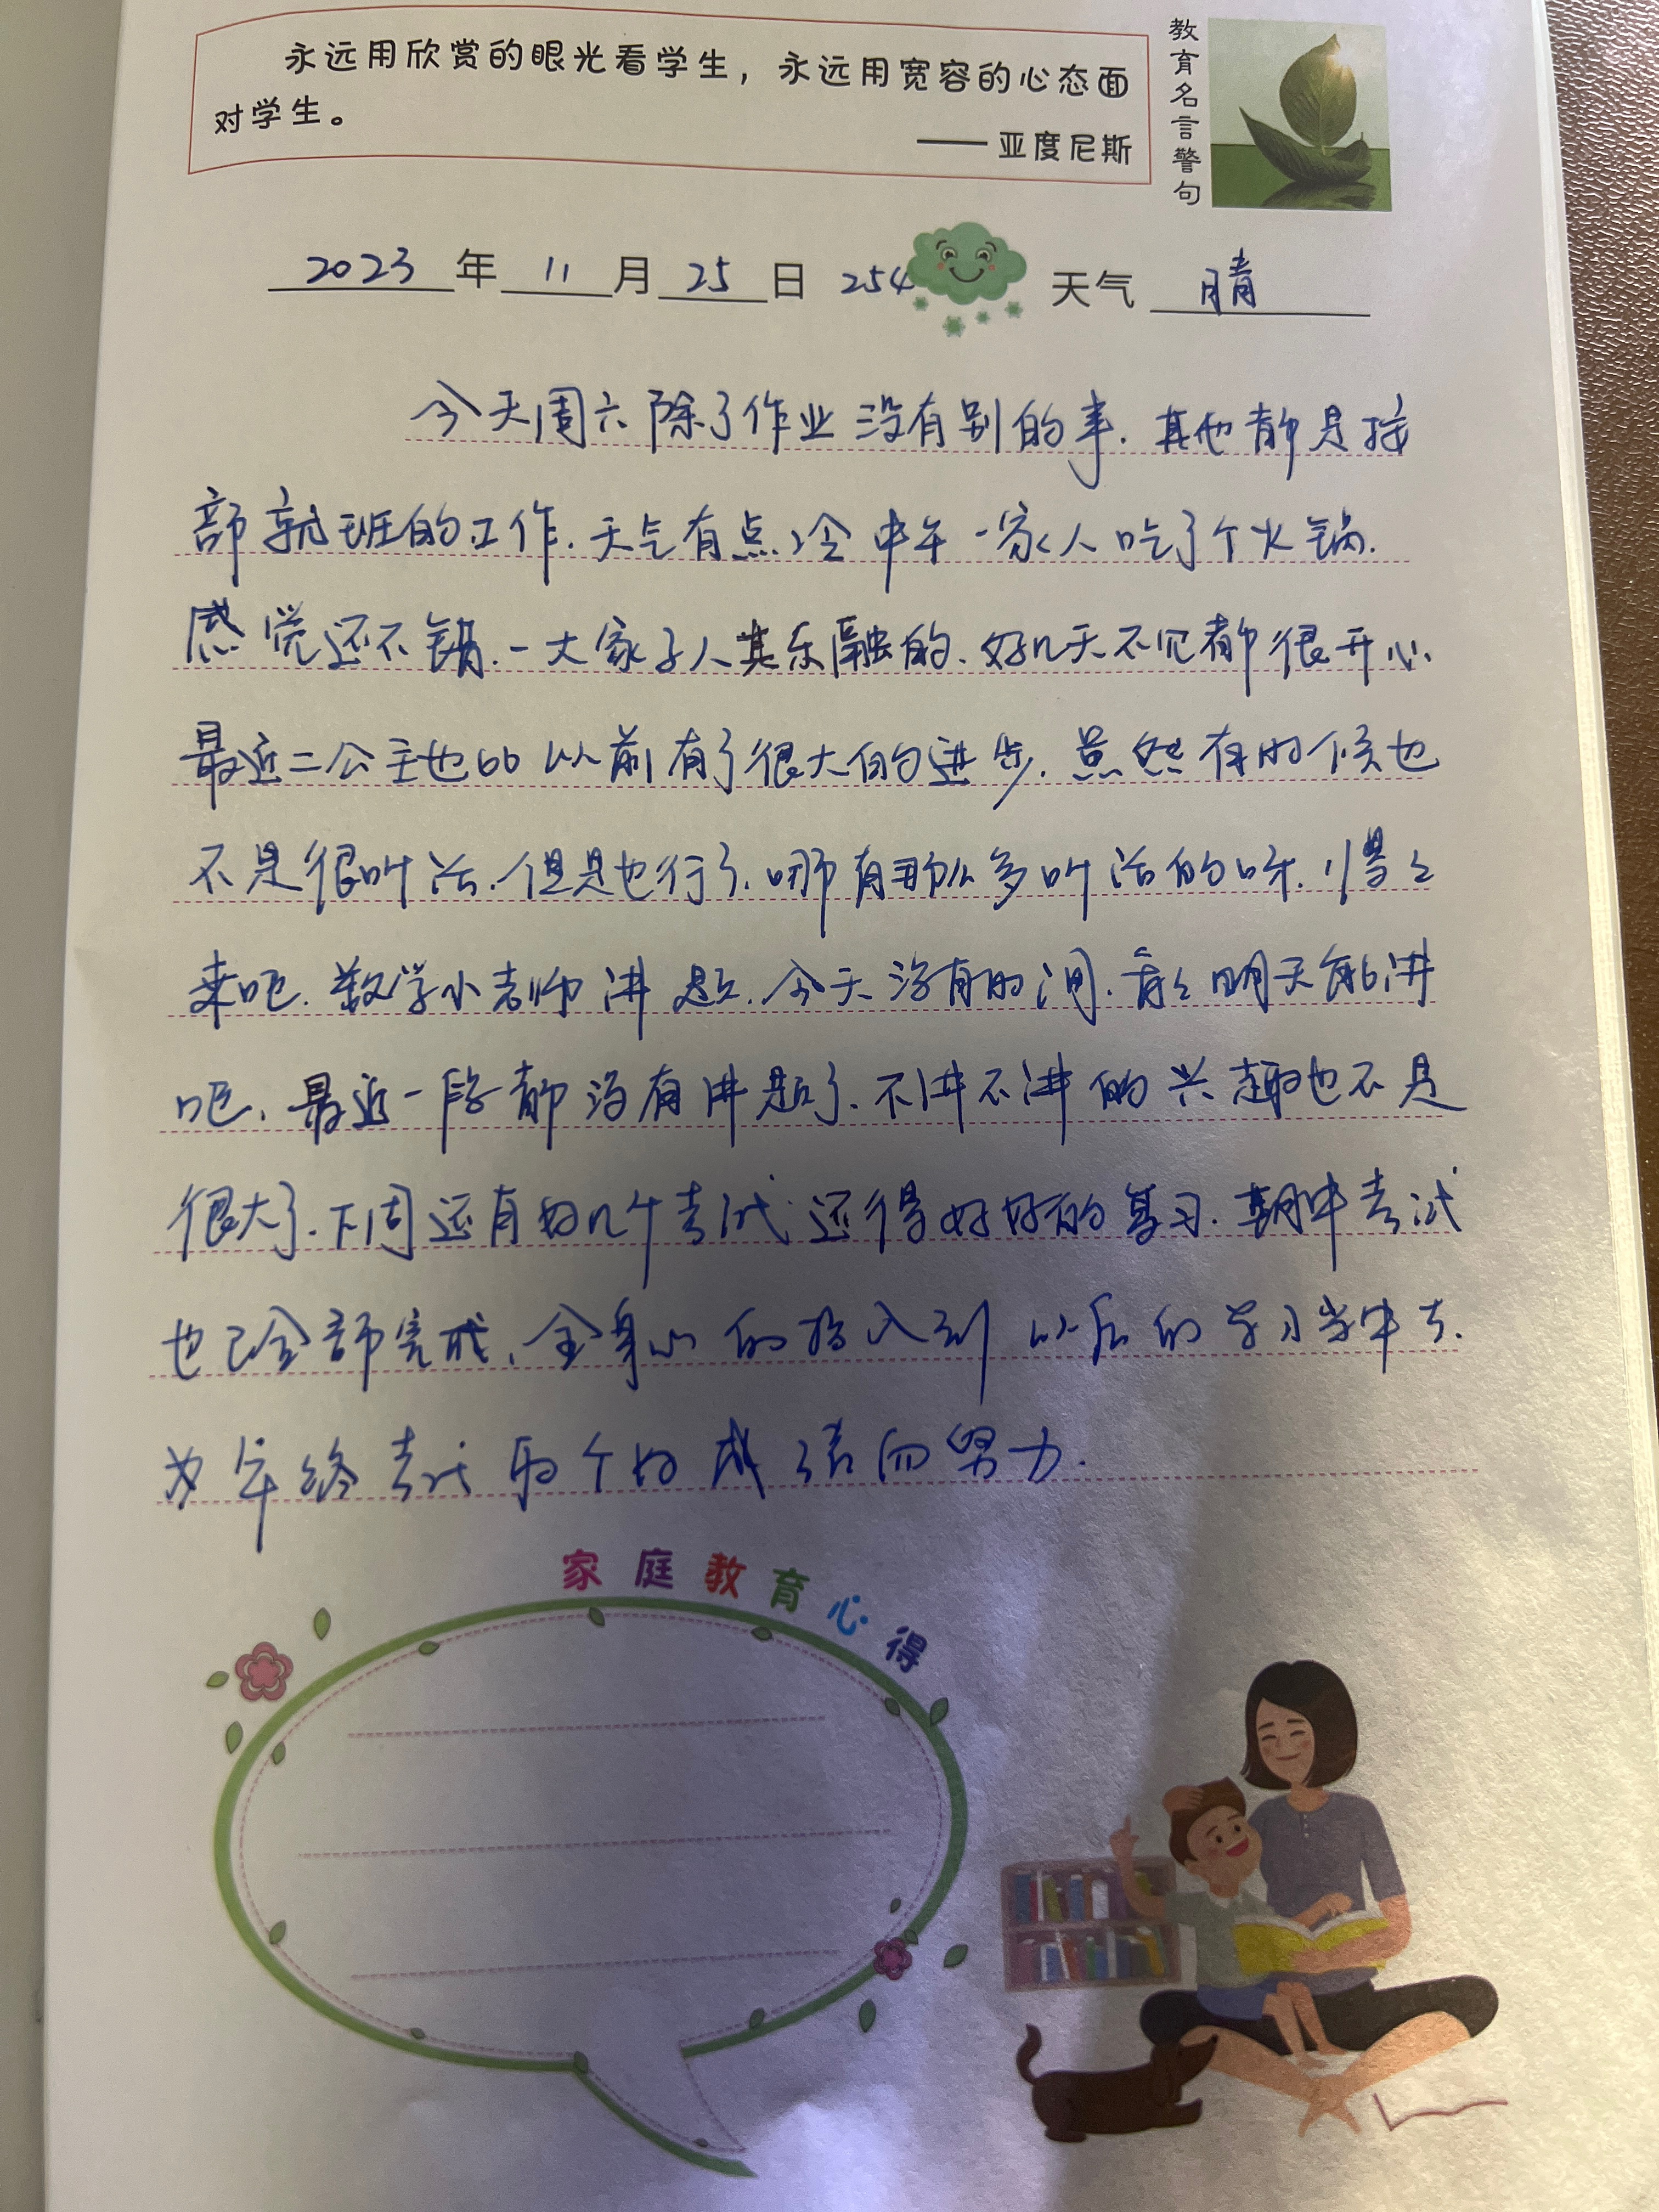 永远用欣赏的眼光看学生，永远用宽容的心态面
对学生。
——亚度尼斯
教育名言警句
2023年11月25日 254 天气 晴
今天周六除了作业没有别的事.其他都是按
部就班的工作.天气有点冷中午一家人吃了个火锅.
感觉还不错.一大家子人其乐融的、好几天不见都很开心、
最近二公主也比以前有了很大的进步.虽然有的候也
不是很听话.但是也行了.哪有那么多听话的呀.慢々
来吧.数学小老师讲题.今天没有的问.看々明天能讲
吧、最近一段都没有讲题了.不讲不讲的兴趣也不是
很大了.下周还有好几个考试.还得好好的复习.期中考试
也已全部完成、全身心的投入到以后的学习当中去.
为年终考试取个好成绩而努力.
家庭教育心得